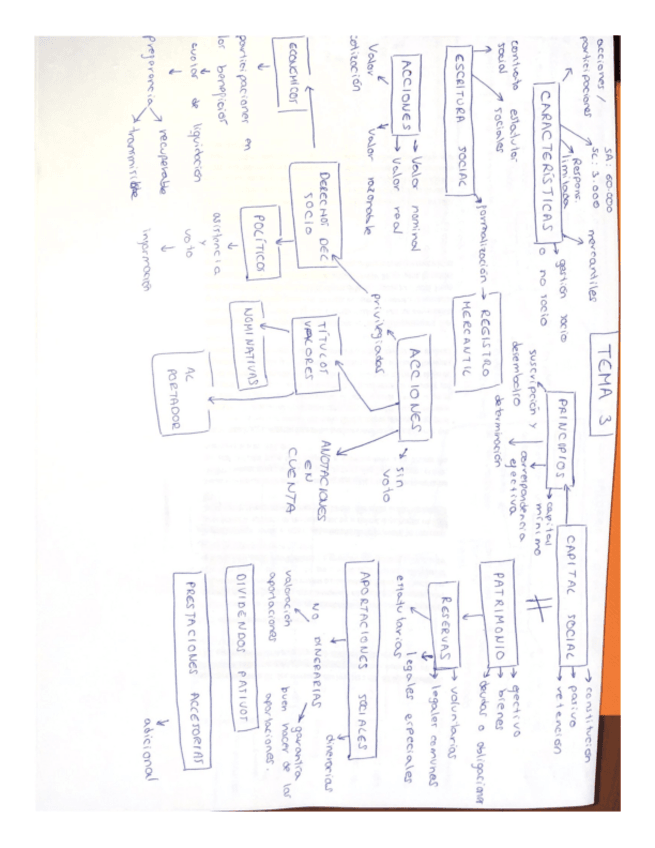 TEMA 3
CARACTERÍSTICAS
acciones /
participaciones
SA: 60.000
SC: 3.000
Respons.
limitada
mercantiles
gestión socio
o no socio
ESCRITURA SOCIAL
contrato
social
estatutos
sociales
formalización
REGISTRO
MERCANTIL
ACCIONES
Valor nominal
Valor real
Valor razonable
Valor
cotización
PRINCIPIOS
suscripción y
desembolso
correspondencia
efectiva
capital
mínimo
determinación
CAPITAL SOCIAL
constitución
pasivo
retención
PATRIMONIO
efectivo
bienes
deudas o obligaciones
RESERVAS
voluntarias
legales comunes
legales especiales
estatutarias
ACCIONES
sin
voto
privilegiadas
TÍTULOS
VALORES
NOMINATIVAS
AL
PORTADOR
ANOTACIONES
EN
CUENTA
DERECHOS DEL
SOCIO
ECONÓMICOS
participaciones en
los beneficios
cuota de liquidación
preferencia
recuperable
transmisible
POLÍTICOS
asistencia
y
voto
información
APORTACIONES SOCIALES
dinerarias
NO DINERARIAS
valoración
aportaciones
garantía
buen hacer de las
aportaciones.
DIVIDENDOS PASIVOS
PRESTACIONES ACCESORIAS
adicional